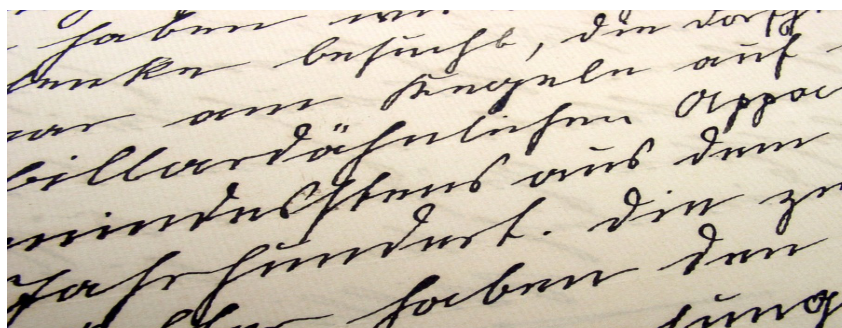 haben wir
besucht, die dorf
war am Kegeln auf
billardähnlichen Appa
mindestens aus dem
Jahrhundert. Die zu
haben den
jung